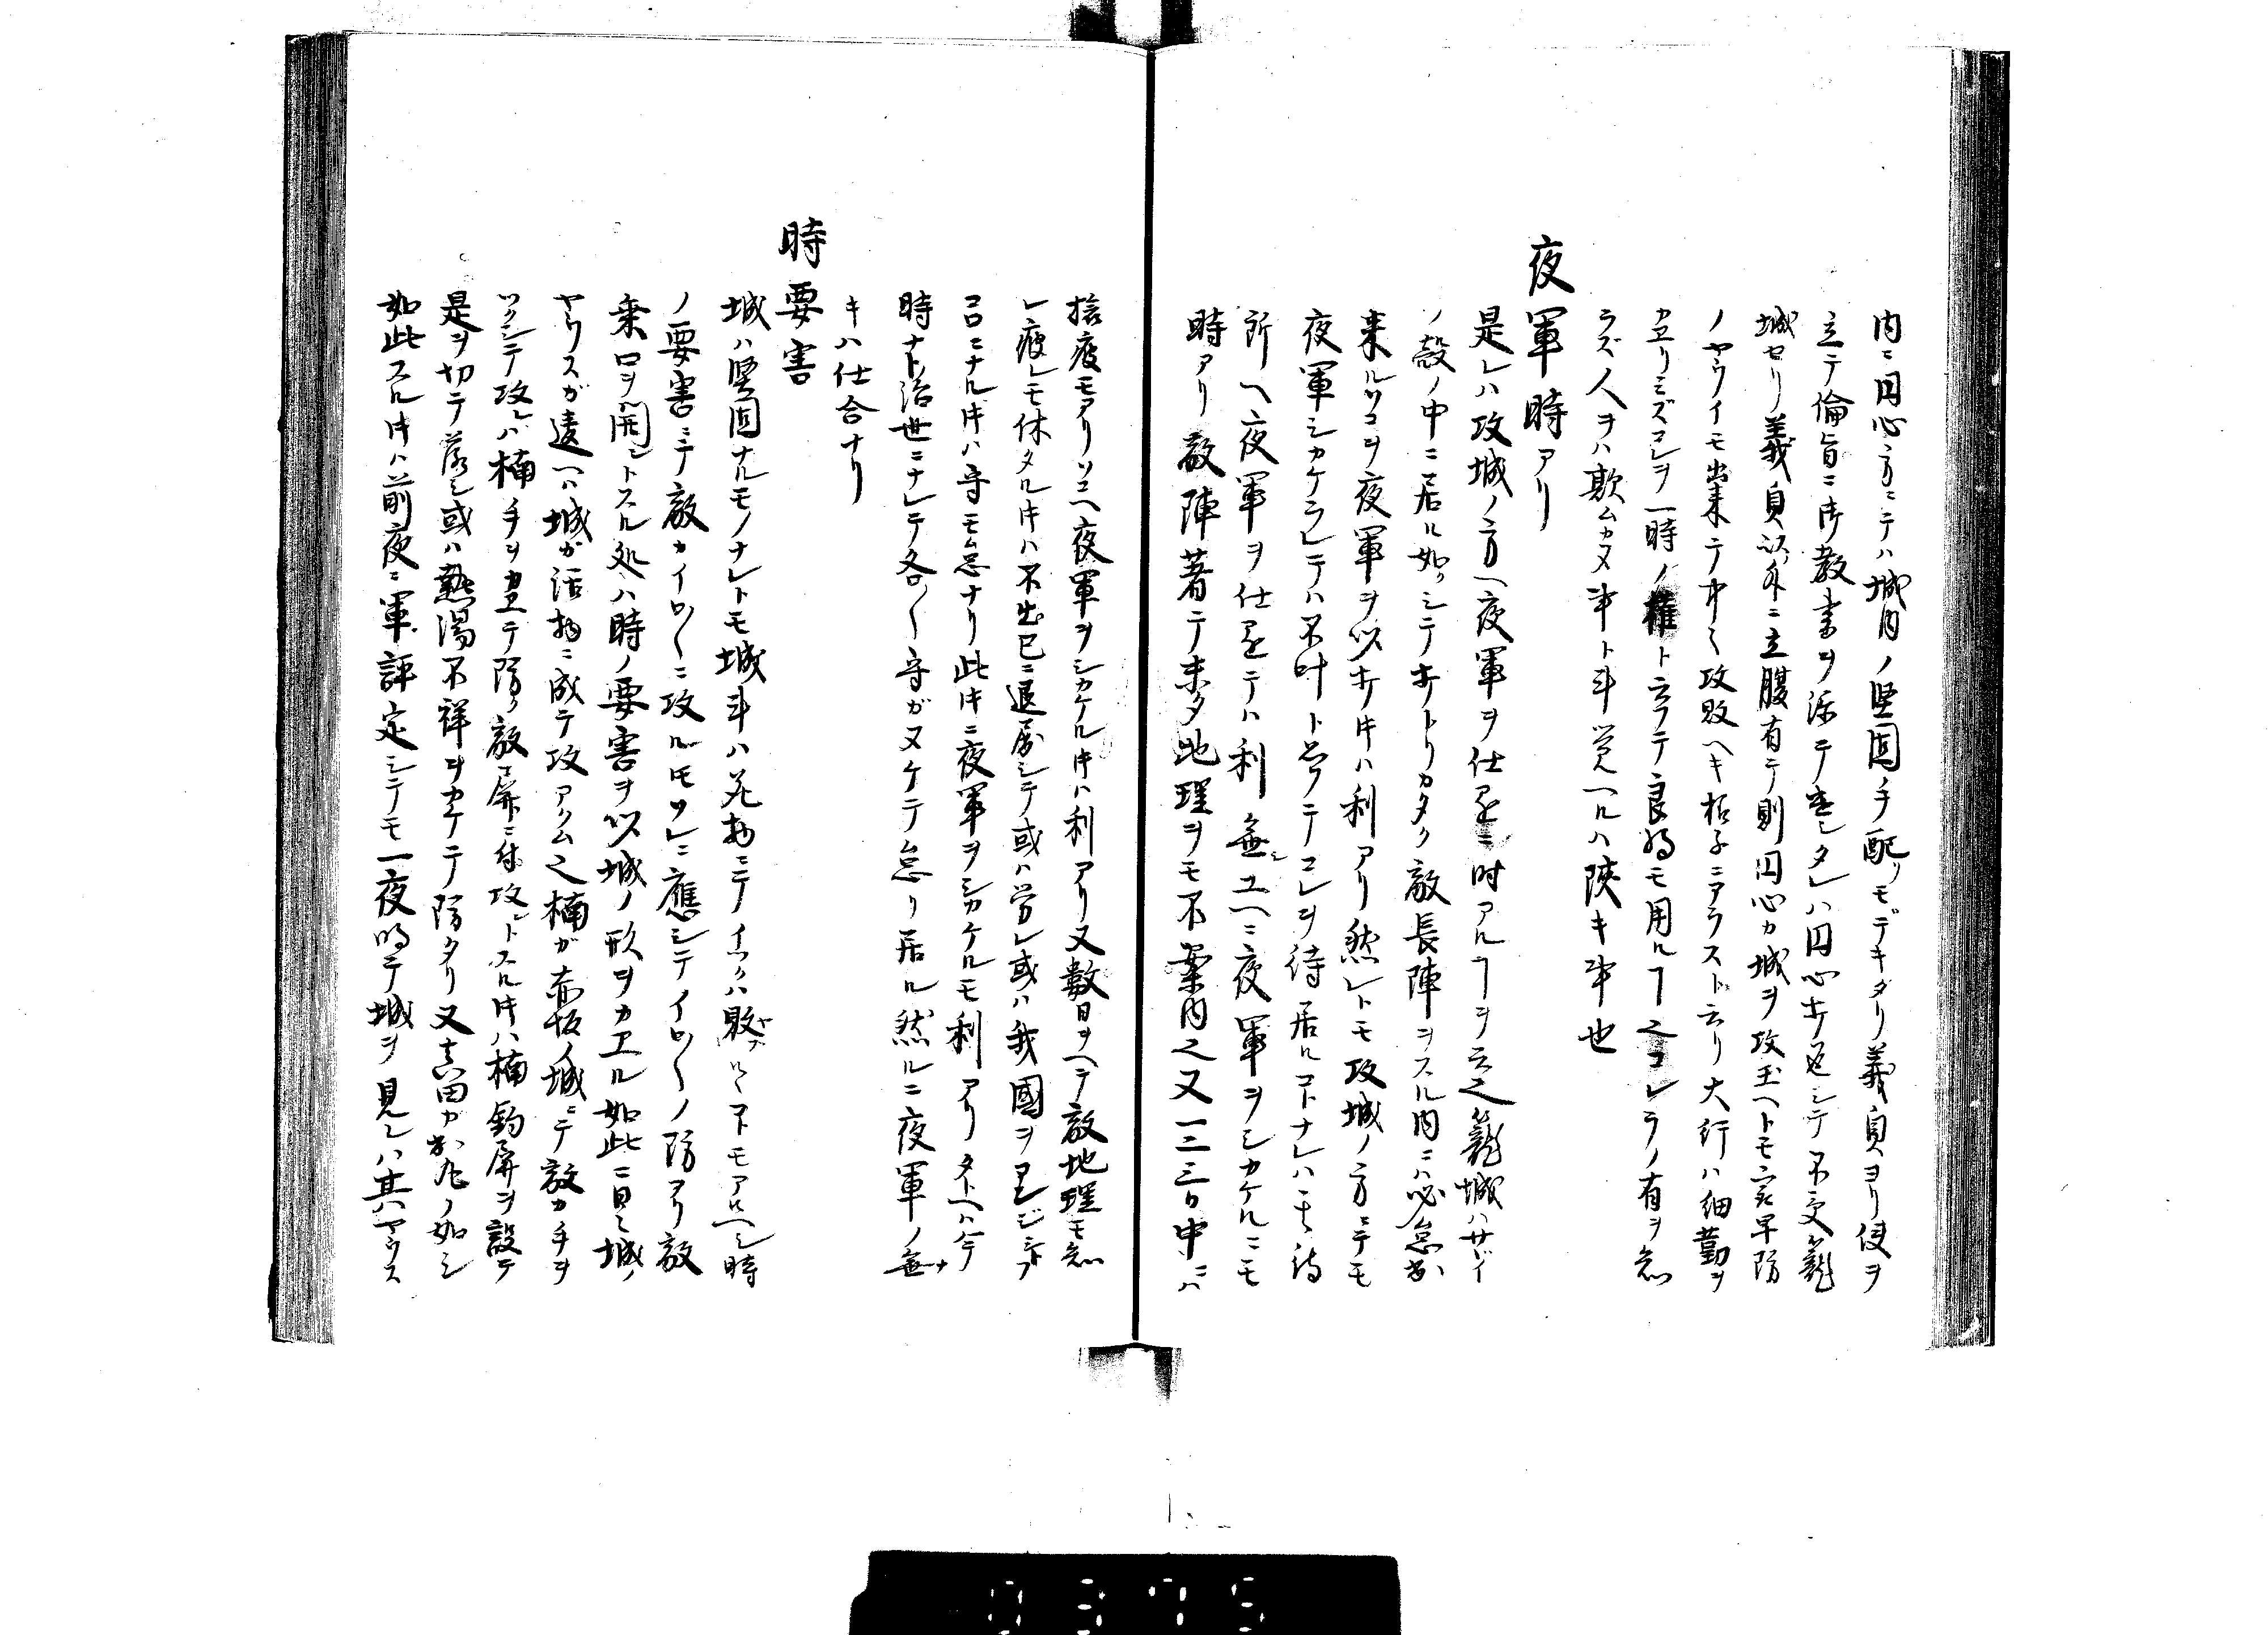 内ニ円心方ニテハ城内ノ堅固手配リモデキタリ義貞ヨリ使ヲ
立テ倫旨ニ御教書ヲ添テ遣シタレハ円心ホリ返シテ不受籠
城セリ義貞以外ニ立腹有テ則円心カ城ヲ攻玉ヘトモ最早防
ノヤウイモ出来テ中々攻敗ヘキ様子ニアラスト云リ大行ハ細勤ヲ
カヱリミズコレヲ一時ノ権ト云テ良将モ用ルヿ也コレラノ有ヲ知
ラズ人ヲハ欺ムカヌ事ト斗覚ヘルハ狭キ事也
夜軍時アリ
是レハ攻城ノ方ヘ夜軍ヲ仕返ニ時アルヿヲ云也籠城ハサヾイ
ノ殻ノ中ニ居ル如クシテホトリカタク敵長陣ヲスル内ニハ必怠出
来ルソコヲ夜軍ヲ以ホキハ利アリ然レトモ攻城ノ方ニテモ
夜軍シカケラレテハ不叶ト思テコレヲ待居ルコトナレハ其待
所ヘ夜軍ヲ仕返テハ利無シユヘニ夜軍ヲシカケルニモ
時アリ敵陣着テ未タ地理ヲモ不案内也又一二三日中ニハ
捨疲モアリソコヘ夜軍ヲシカケル時ハ利アリ又数日ヲヘテ敵地理モ知
レ疲レモ休タル時ハ不出已ニ退屈シテ或ハ労レ或ハ我國ヲ
コロニナル時ハ守モ怠ナリ此時ニ夜軍ヲシカケルモ利アリタトヘハ今
時ナト治世ニナレテ各々守ガヌケテ怠リ居ル然ルニ夜軍ノ無
キハ仕合ナリ
時要害
城ハ堅固ナルモノナレトモ城斗ハ死物ニテイツクハ敗ルヽコトモアルヘシ時
ノ要害ニテ敵カイロ〳〵ニ攻ルモソレニ應シテイロ〳〵ノ防アリ敵
乗口ヲ開ントスル処ハ時ノ要害ヲ以城ノ形ヲカエル如此ニ日々城ノ
ヤウスガ違ヘハ城カ活物ニ成テ攻アクム也楠ガ赤坂ノ城ニテ敵カ手ヲ
ツクシテ攻レハ楠手ヲカヱテ防ク敵屏ニ付攻ントスル時ハ楠釣屏ヲ設テ
是ヲ切テ落シ或ハ熱湯不祥ヲカケテ防タリ又真田カ出丸ノ如シ
如此スル時ハ前夜ニ軍評定シテモ一夜明テ城ヲ見レハ其ヤウス